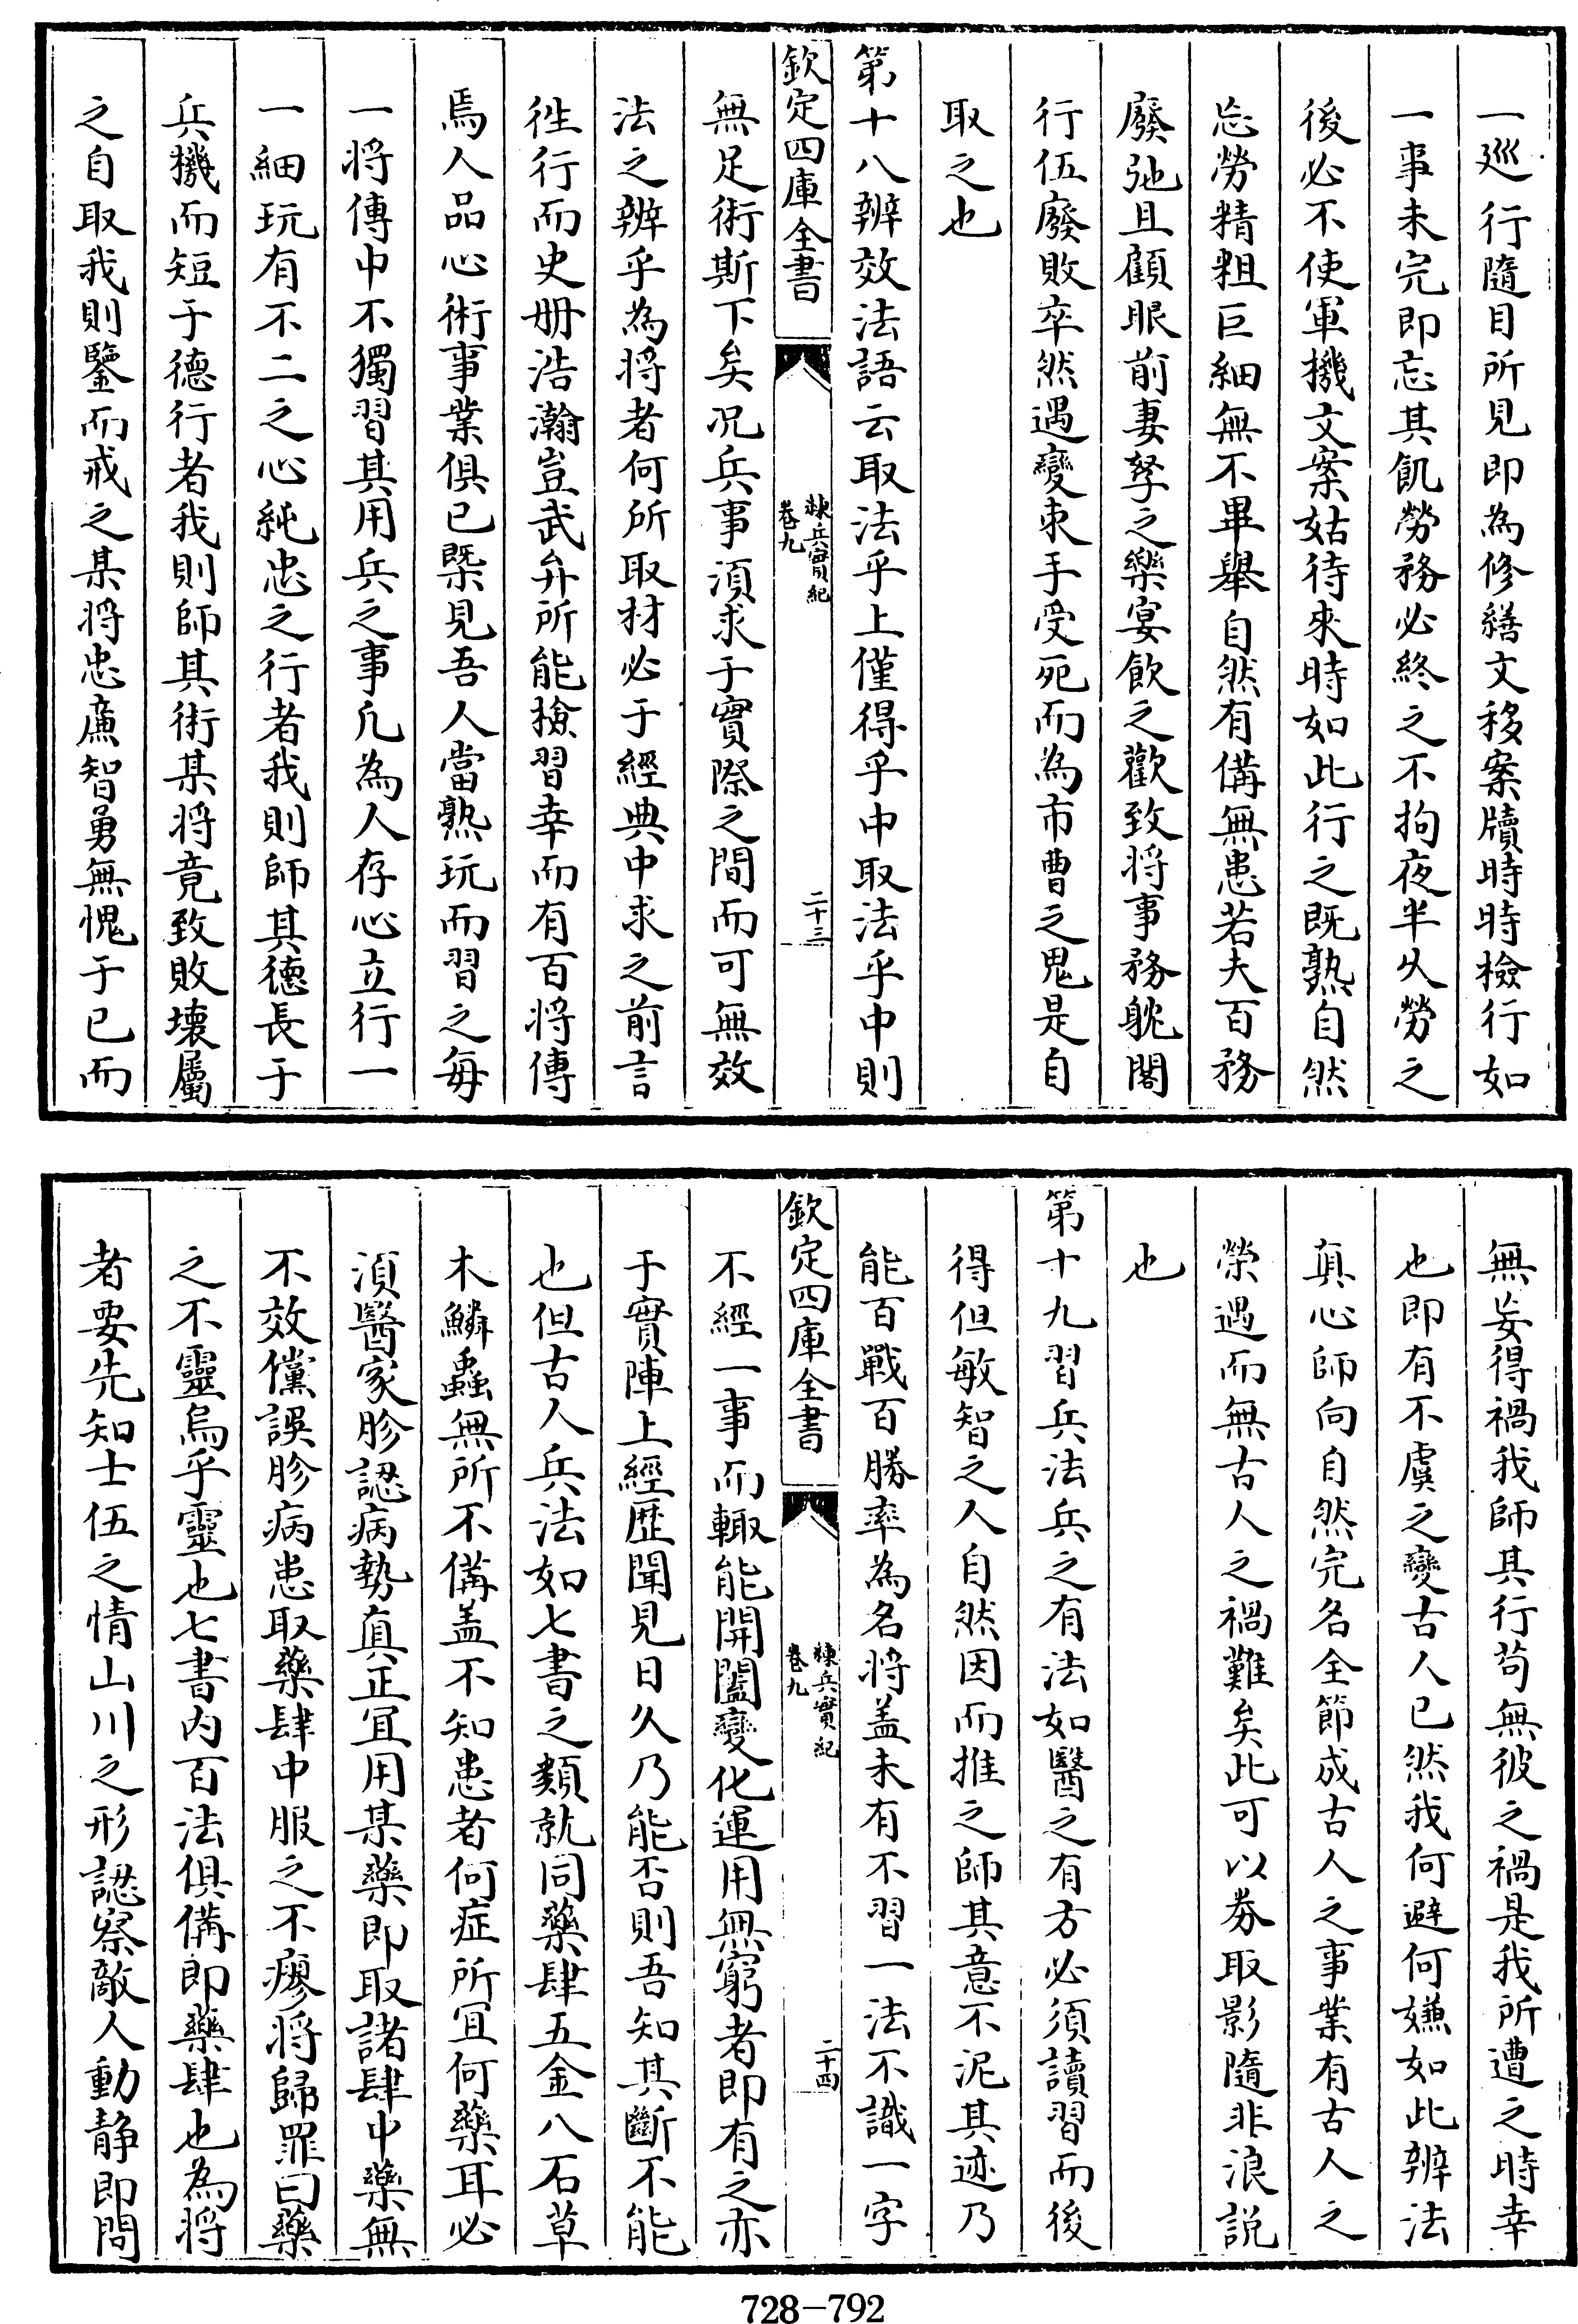 一巡行隨目所見即為修繕文移案牘時時檢行如
一事未完即忘其飢勞務必終之不拘夜半久勞之
後必不使軍機文案姑待來時如此行之既熟自然
忘勞精粗巨細無不畢舉自然有備無患若夫百務
廢弛且顧眼前妻孥之樂宴飲之歡致將事務躭閣
行伍廢敗卒然遇變束手受死而為市曹之鬼是自
取之也
第十八辨效法語云取法乎上僅得乎中取法乎中則
欽定四庫全書
練兵實紀
卷九
二十三
無足術斯下矣况兵事須求于實際之間而可無效
法之辨乎為將者何所取材必于經典中求之前言
徃行而史册浩瀚豈武弁所能撿習幸而有百將傳
焉人品心術事業俱已槩見吾人當熟玩而習之每
一將傳中不獨習其用兵之事凡為人存心立行一
一細玩有不二之心純忠之行者我則師其德長于
兵機而短于德行者我則師其術某將竟致敗壊屬
之自取我則鑒而戒之某將忠廉智勇無愧于已而
無妄得禍我師其行茍無彼之禍是我所遭之時幸
也即有不虞之變古人已然我何避何嫌如此辨法
真心師向自然完名全節成古人之事業有古人之
榮遇而無古人之禍難矣此可以劵取影隨非浪説
也
第十九習兵法兵之有法如醫之有方必須讀習而後
得但敏智之人自然因而推之師其意不泥其迹乃
能百戰百勝率為名將盖未有不習一法不識一字
欽定四庫全書
練兵實紀
卷九
二十四
不經一事而輙能開闔變化運用無窮者即有之亦
于實陣上經歴聞見日久乃能否則吾知其斷不能
也但古人兵法如七書之類就同藥肆五金八石草
木鱗蟲無所不備盖不知患者何症所宜何藥耳必
湏醫家胗認病勢真正宜用某藥即取諸肆中藥無
不效儻誤胗病患取藥肆中服之不瘳將歸罪曰藥
之不靈烏乎靈也七書内百法俱備即藥肆也為將
者要先知士伍之情山川之形認察敵人動静即間
728-792